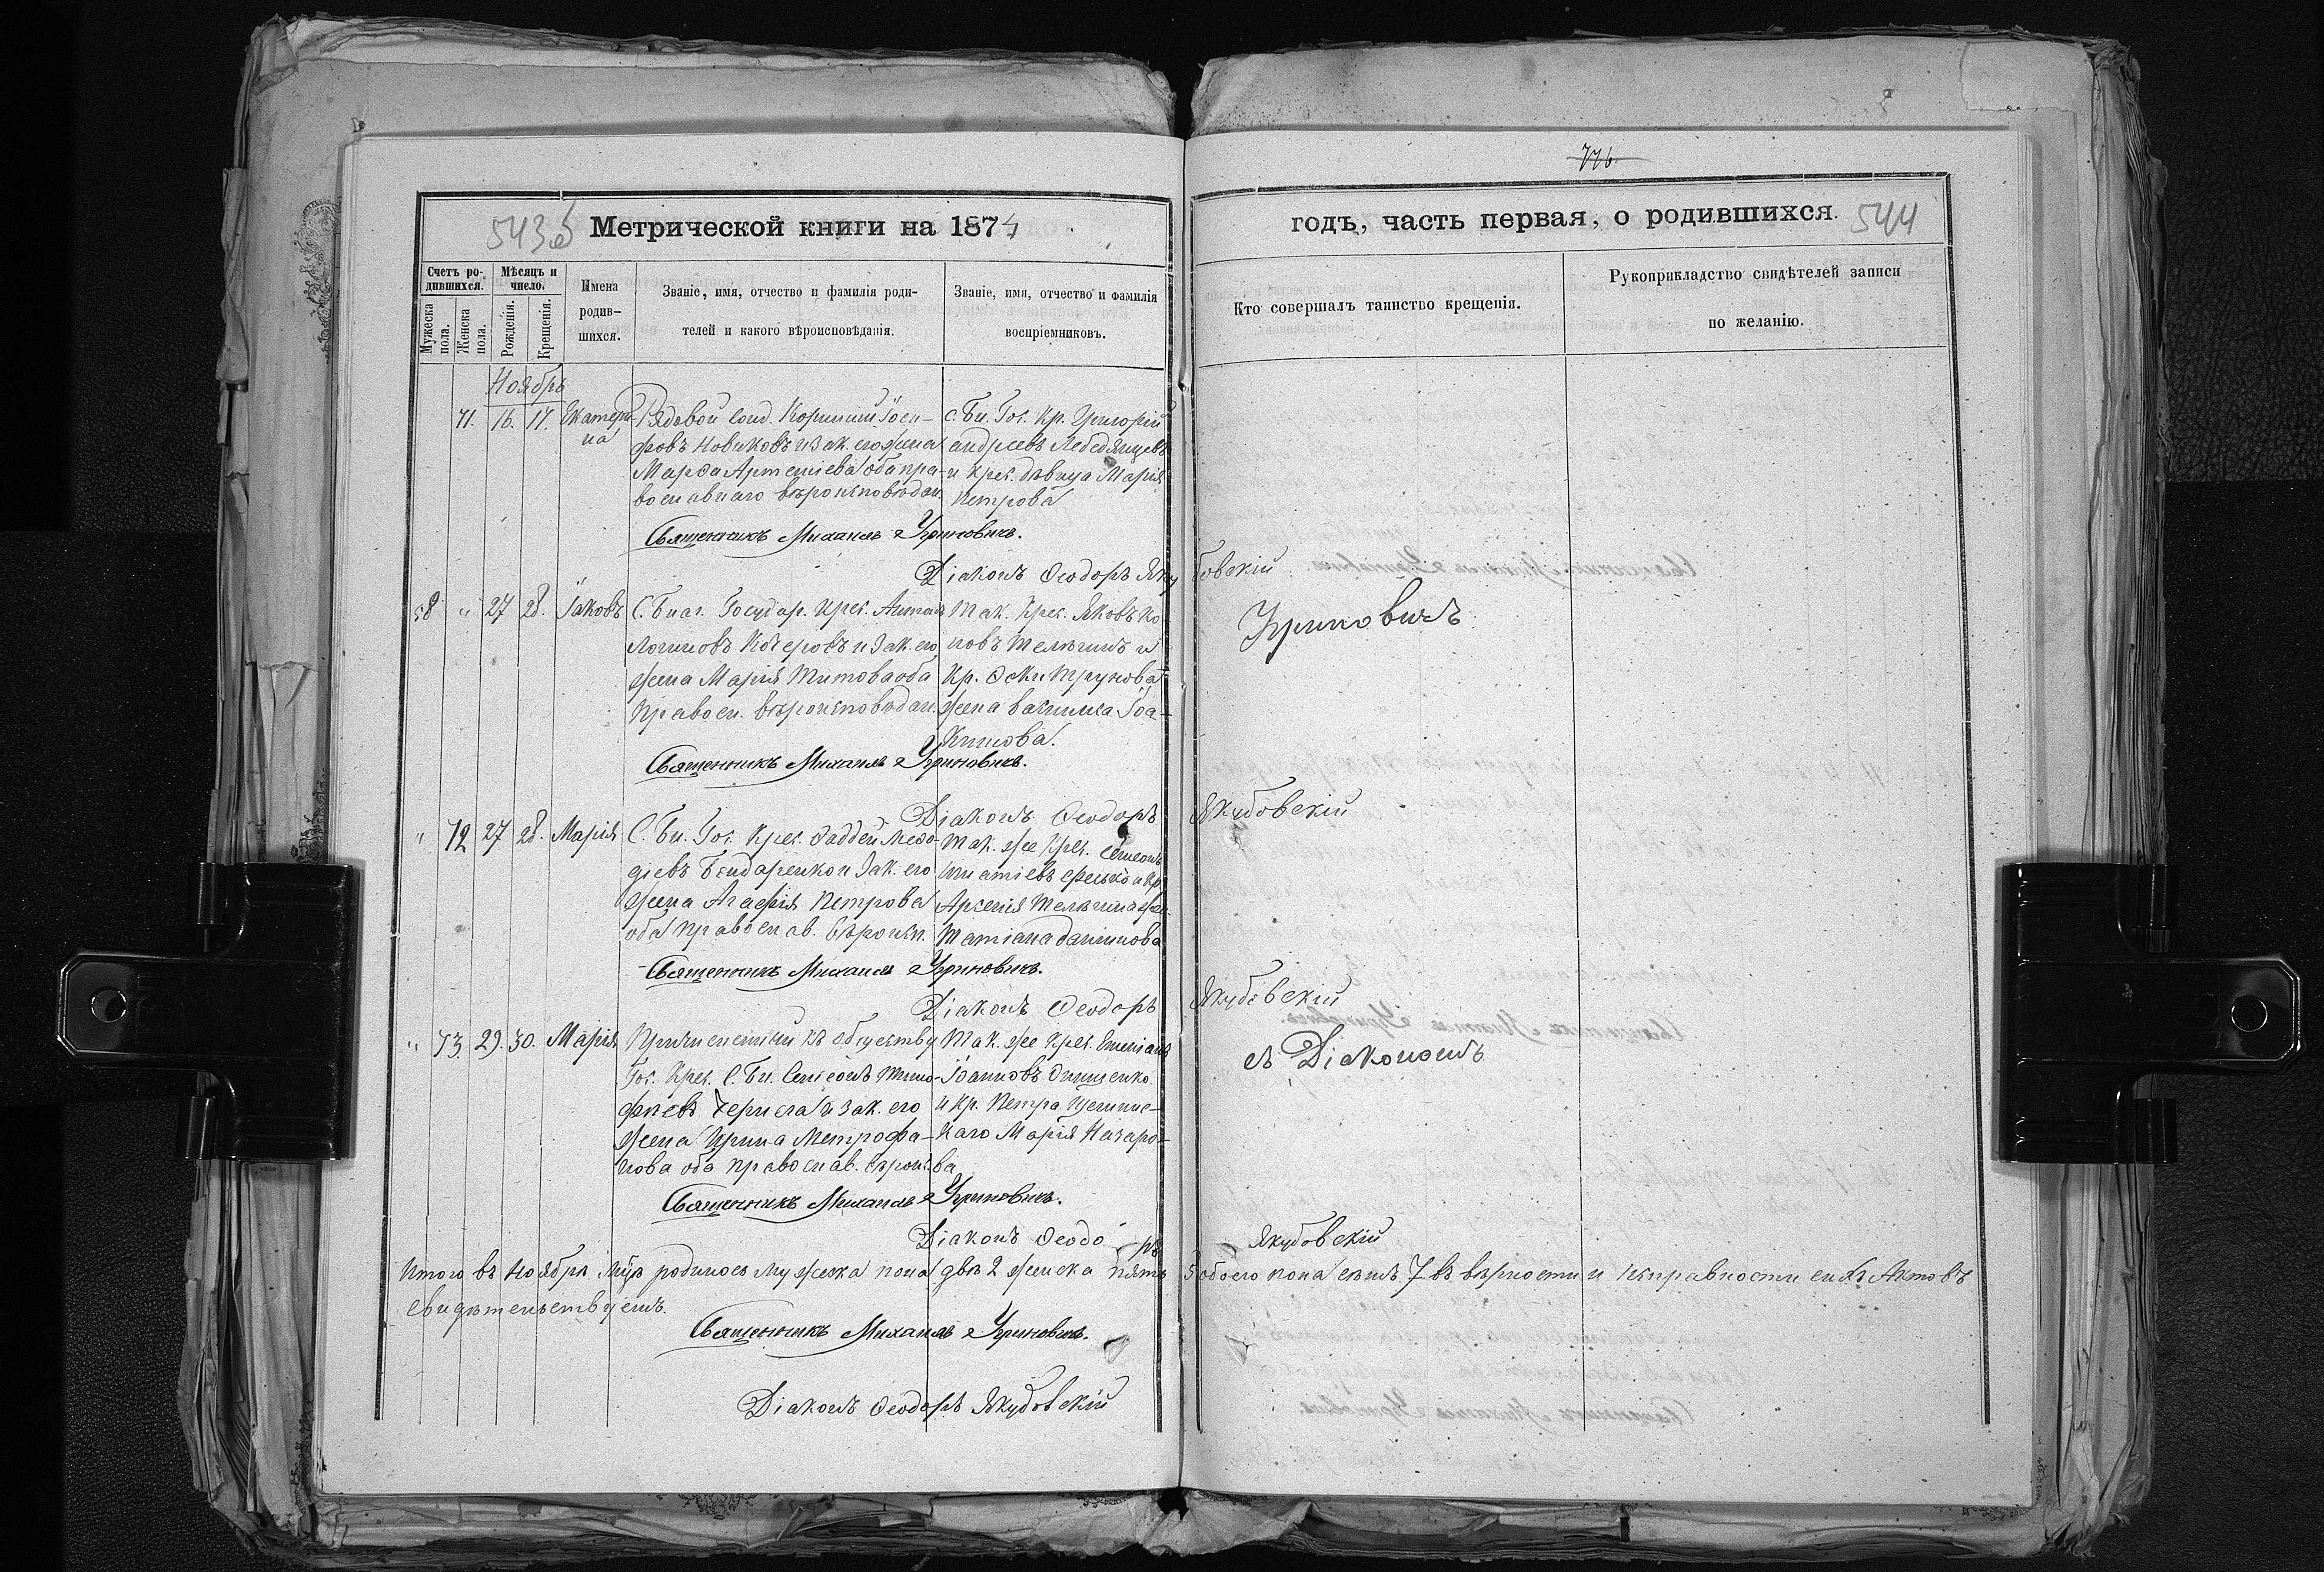 776
543об Метрической книги на 1874
годъ, часть первая, о родившихся. 544
Счетъ родившихся.
Мужеска пола.
Женска пола.
Мѣсяцъ и число.
Рожденія.
Крещенія.
Имена родившихся.
Званіе, имя, отчество и фамилія роди-
телей и какого вѣроисповѣданія.
Званіе, имя, отчество и фамилія
воспріемниковъ.
Кто совершалъ таинство крещенія.
Рукоприкладство свидѣтелей записи
по желанію.
Ноябрь
71. 16. 17. Екатери-
на
Рядовой солд. Корнилій Іоси-
фовъ Новиковъ и зак. его жена
Марѳа Артеміева оба пра-
вославнаго вѣроисповѣдан.
с. Бл. Гос. Кр. Григорій
Андреевъ Лебедянцевъ
и Крес. дѣвица Марія
Петрова
Священникъ Михаилъ Уриновичъ.
Діаконъ Ѳеодоръ Якубовскій
58 " 27 28. Іаковъ
С. Благ. Государ. Крес. Антонъ
Логиновъ и Зак. его
жена Марія Титова оба
Правосл. вѣроисповѣдан.
Так. Крес. Яковъ
и
Кр.
жена Іоа-
кимова.
Уриновичъ
Священникъ Михаилъ Уриновичъ.
Діаконъ Ѳеодоръ Якубовскій
" 72 27 28. Марія
С. Бл. Гос. Крес. Ѳаддей Меѳо-
діевъ Бондаренко и Зак. его
жена Агафія Петрова
оба православ. вѣроисп.
Так. же Крес. Симеонъ
Игнатіевъ и Кр.
Татіана
Священникъ Михаилъ Уриновичъ.
Діаконъ Ѳеодоръ Якубовскій
" 73. 29. 30. Марія
Причисленный къ обществу
Гос. Крес. С. Бл. Симеонъ Тимо-
фіевъ и зак. его
жена Ирина Метрофа-
нова оба православ. вѣроис.
Так. же Крес. Емеліанъ
Іоанновъ Онищенко
и Кр. Петра
каго Марія Назаро-
ва
съ Діакономъ
Священникъ Михаилъ Уриновичъ.
Діаконъ Ѳеодоръ Якубовскій
Итого въ Ноябрѣ м-цѣ родилось мужеска пола два 2 женска пять 5 обоего пола семь 7 въ вѣрности и исправности сихъ Актовъ
свидѣтельствуемъ.
Священникъ Михаилъ Уриновичъ.
Діаконъ Ѳеодоръ Якубовскій